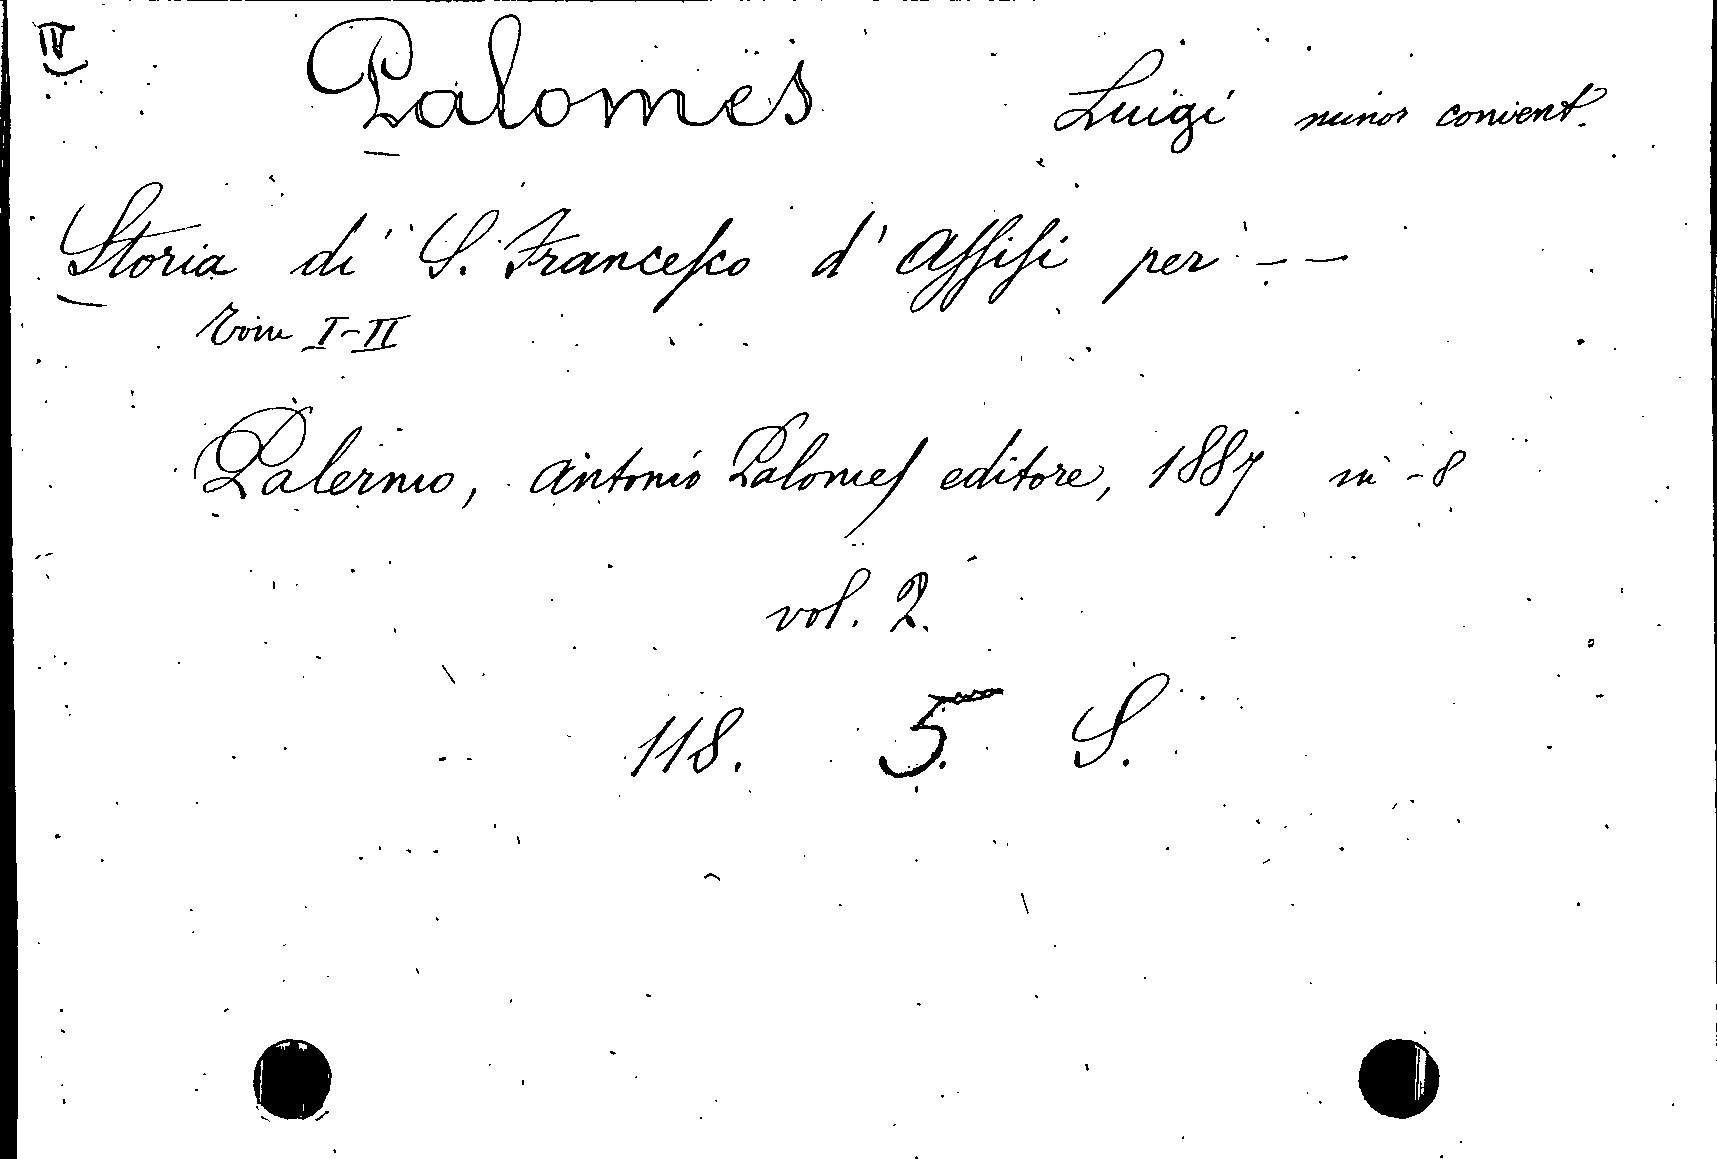 IV
Palomes Luigi minor convent.
Storia di S. Francesco d'Assisi per --
Tom I-II
Palermo, Antonio Palomes editore, 1887 in-8
vol. 2.
118. 5. S.